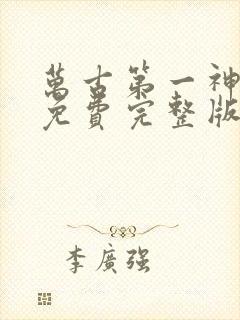 萬古第一神
免費完整版
李廣强